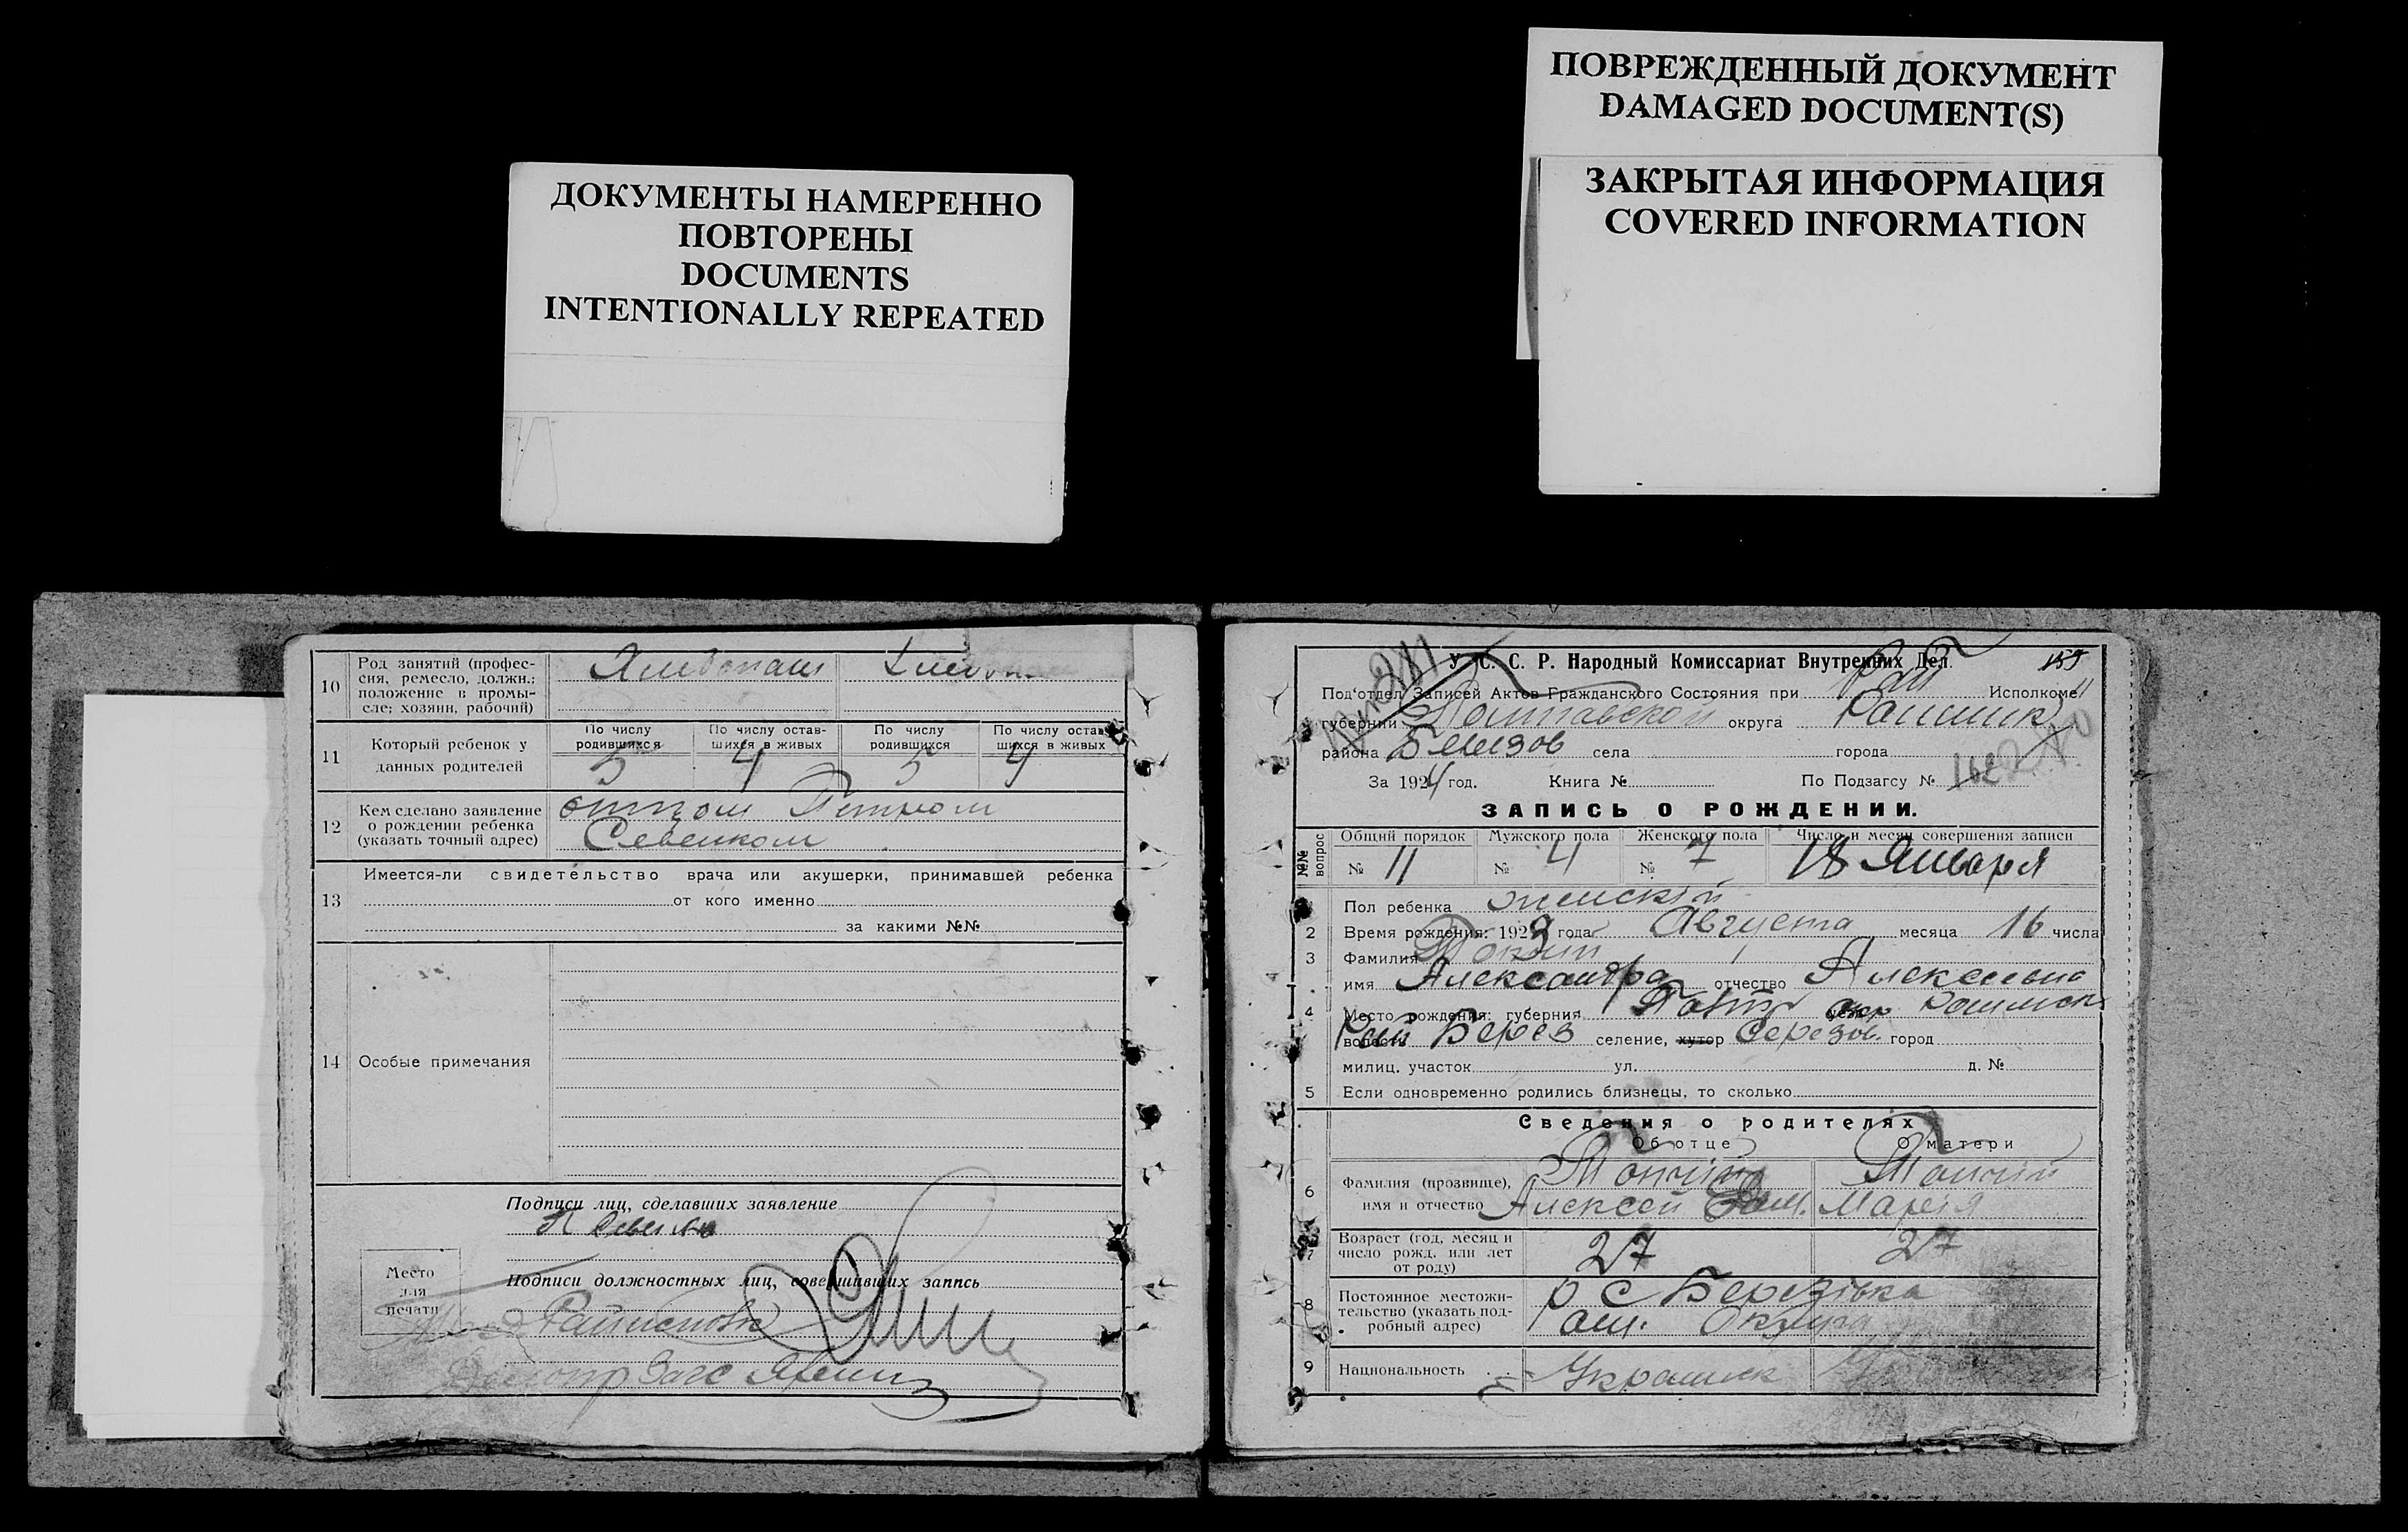 ДОКУМЕНТЫ НАМЕРЕННО
ПОВТОРЕНЫ
DOCUMENTS
INTENTIONALLY REPEATED
ПОВРЕЖДЕННЫЙ ДОКУМЕНТ
DAMAGED DOCUMENT(S)
ЗАКРЫТАЯ ИНФОРМАЦИЯ
COVERED INFORMATION
10 Род занятий (профес-
сия, ремесло, должн.;
положение в промы-
сле; хозяин, рабочий)
По числу родившихся По числу остав-шихся в живых По числу родившихся По числу остав-шихся в живых
11 Который ребенок у
данных родителей
5 4 5 4
12 Кем сделано заявление
о рождении ребенка
(указать точный адрес)
отцом Петром
Севенком
13 Имеется-ли свидетельство врача или акушерки, принимавшей ребенка
от кого именно
за какими №№
14 Особые примечания
Подписи лиц, сделавших заявление
Место
для
печати
Подписи должностных лиц, совершивших запись
Загс
У. С. С. Р. Народный Комиссариат Внутренних Дел.
159
Под'отдел Записей Актов Гражданского Состояния при Рай Исполкоме
губернии Полтавской округа
района села города
За 1924 год. Книга № По Подзагсу №
ЗАПИСЬ О РОЖДЕНИИ.
№№ вопрос
Общий порядок Мужского пола Женского пола Число и месяц совершения записи
№ 11 № 4 № 7 18 Января
Пол ребенка женский
2 Время рождения: 1923 года Августа месяца 16 числа
3 Фамилия
имя Александра отчество Алексеевна
4 Место рождения: губерния Полт окр
волость Рай Берез селение, хутор Березов. город
милиц. участок ул. д. №
5 Если одновременно родились близнецы, то сколько
Сведения о родителях
Об отце О матери
6 Фамилия (прозвище),
имя и отчество
Алексей Мария
7 Возраст (год, месяц и
число рожд. или лет
от роду)
27 27
8 Постоянное местожи-
тельство (указать под-
робный адрес)
с Березівка
Округа
9 Национальность Украинск